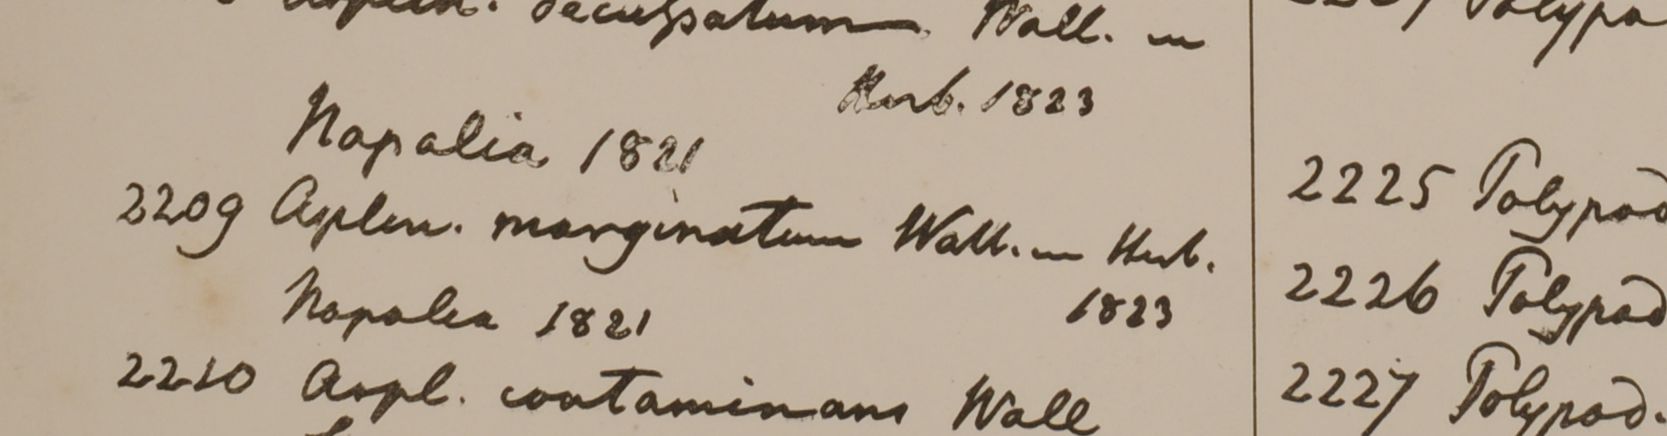 Asplen. decussatum Wall. in
Herb. 1823
Napalia 1821
2209 Asplen. marginatum Wall. in Herb.
Napalia 1821 1823
2210 Aspl. contaminans Wall
2225 Polypod
2226 Polypod
2227 Polypod.